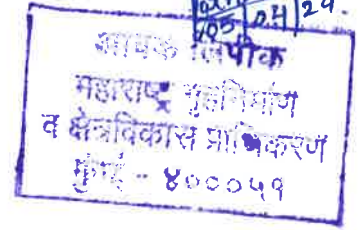 105 04 29.
आवक लिपीक
महाराष्ट्र गृहनिर्माण
व क्षेत्रविकास प्राधिकरण
मुंबई - ४०००५१